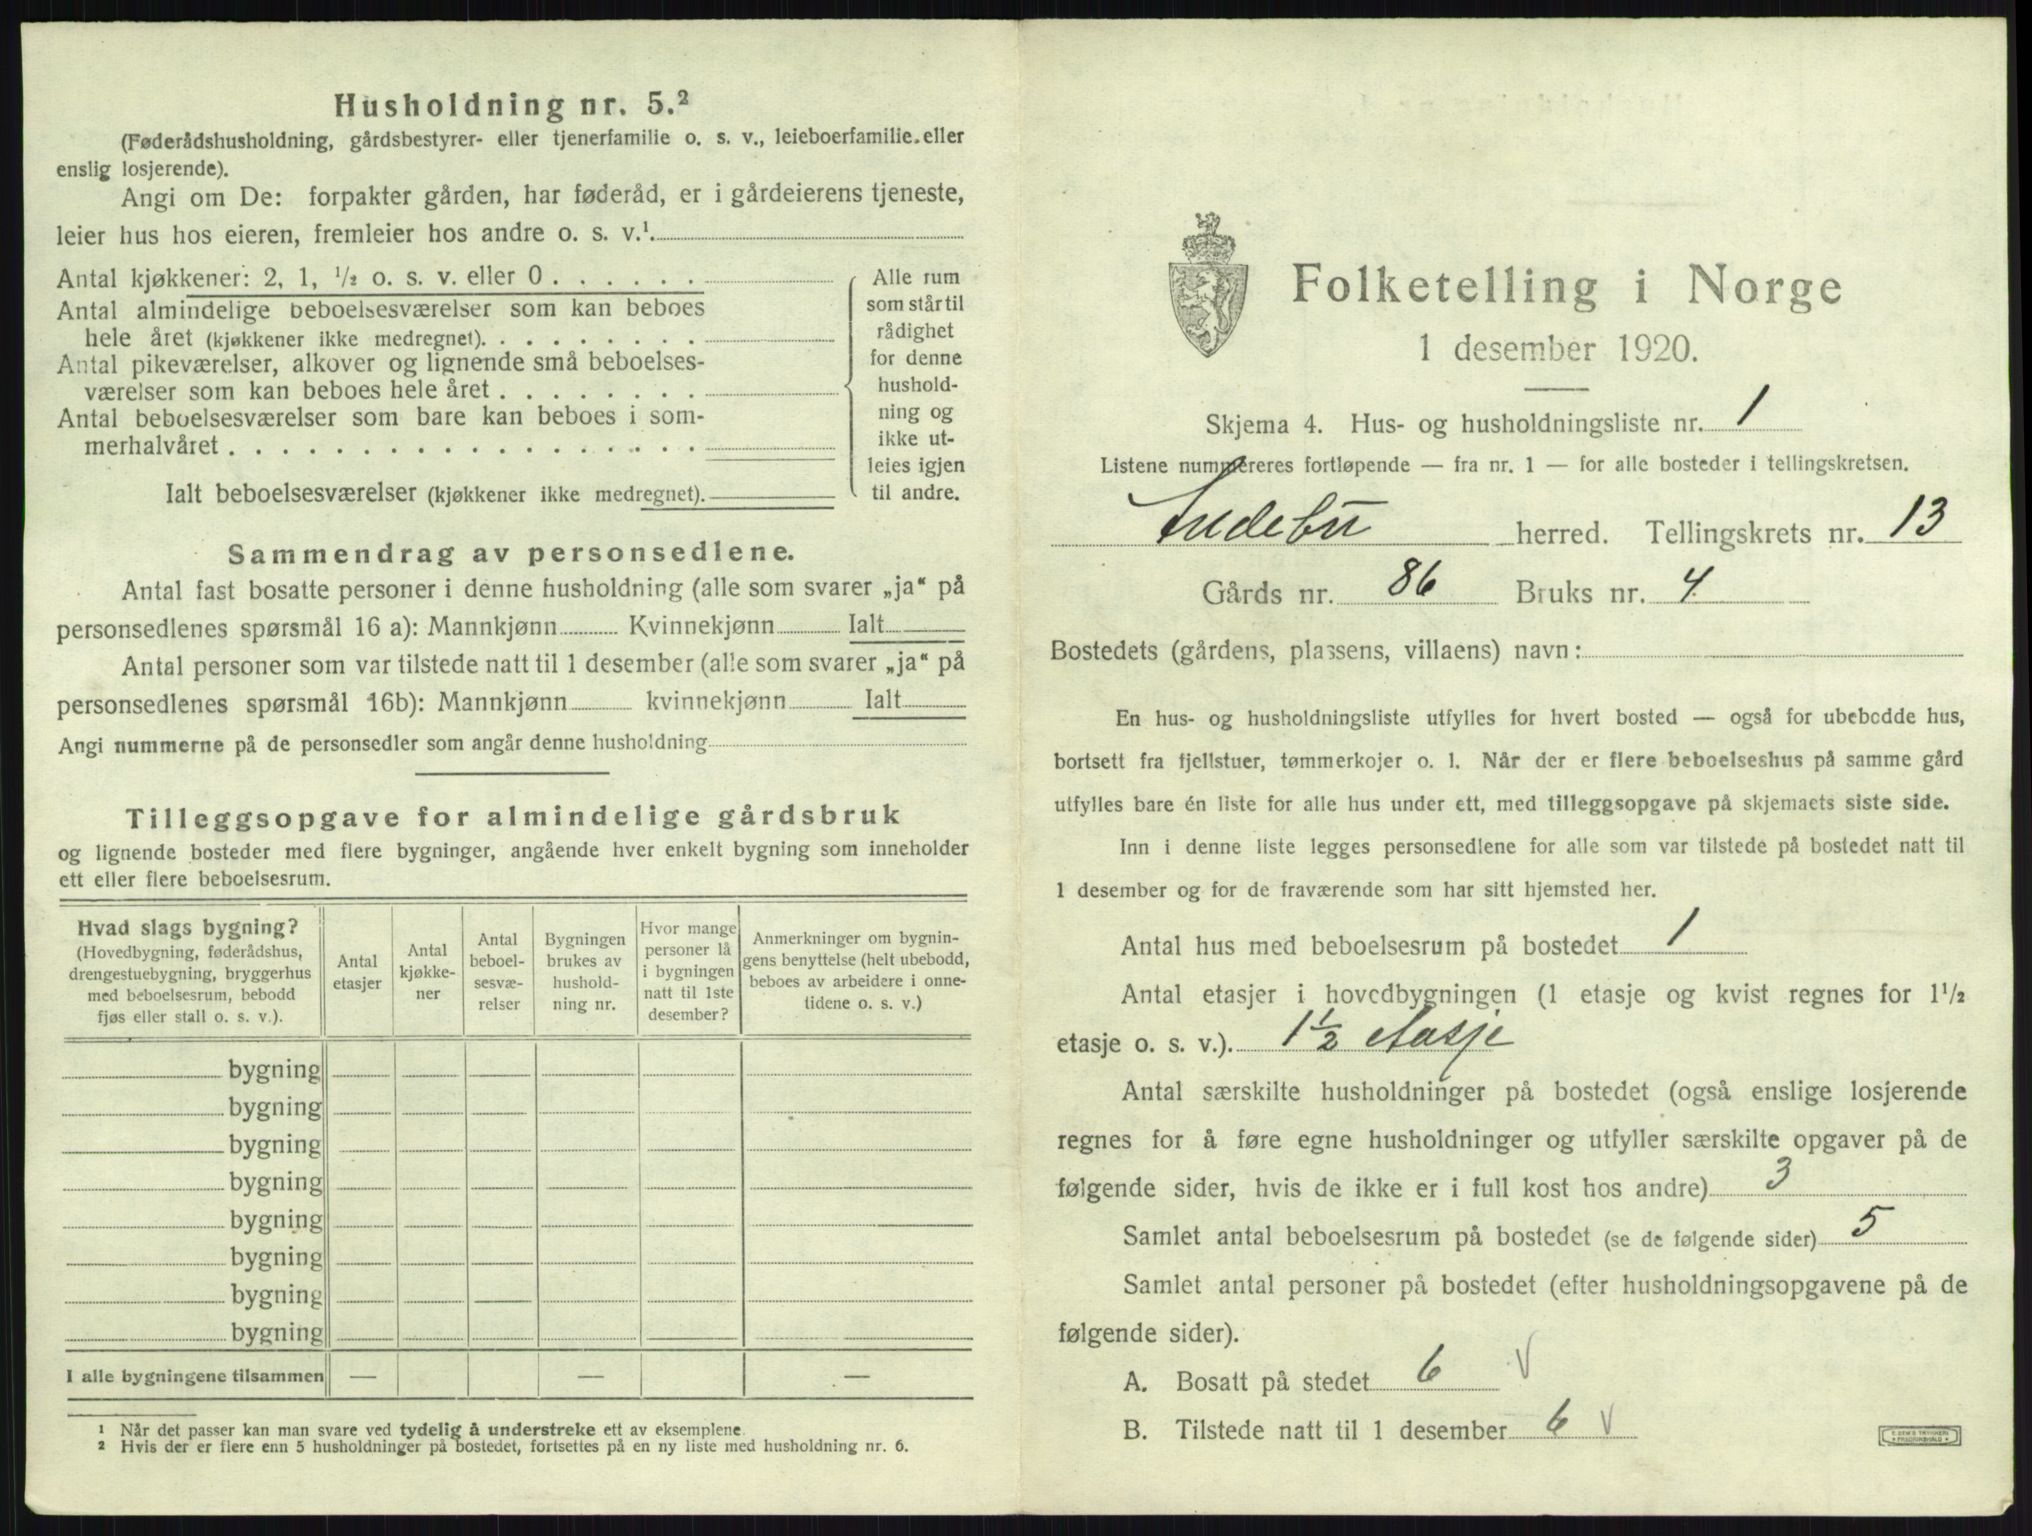 Husholdning nr. 5.²
(Føderådshusholdning, gårdsbestyrer- eller tjenerfamilie o. s. v., leieboerfamilie. eller
enslig losjerende).
Angi om De: forpakter gården, har føderåd, er i gårdeierens tjeneste,
leier hus hos eieren, fremleier hos andre o. s. v.¹
Antal kjøkkener: 2, 1, ½ o. s. v. eller 0
Antal almindelige beboelsesværelser som kan beboes
hele året (kjøkkener ikke medregnet).
Antal pikeværelser, alkover og lignende små beboelses-
værelser som kan beboes hele året
Antal beboelsesværelser som bare kan beboes i som-
merhalvåret
Ialt beboelsesværelser (kjøkkener ikke medregnet).
Alle rum
som står til
rådighet
for denne
hushold-
ning og
ikke ut-
leies igjen
til andre.
Sammendrag av personsedlene.
Antal fast bosatte personer i denne husholdning (alle som svarer „ja“ på
personsedlenes spørsmål 16 a): Mannkjønn Kvinnekjønn Ialt
Antal personer som var tilstede natt til 1 desember (alle som svarer „ja“ på
personsedlenes spørsmål 16b): Mannkjønn kvinnekjønn Ialt
Angi nummerne på de personsedler som angår denne husholdning
Tilleggsopgave for almindelige gårdsbruk
og lignende bosteder med flere bygninger, angående hver enkelt bygning som inneholder
ett eller flere beboelsesrum.
Hvad slags bygning?
(Hovedbygning, føderådshus,
drengestuebygning, bryggerhus
med beboelsesrum, bebodd
fjøs eller stall o. s. v.).
Antal
etasjer
Antal
kjøkke-
ner
Antal
beboel-
sesvæ-
relser
Bygningen
brukes av
hushold-
ning nr.
Hvor mange
personer lå
i bygningen
natt til 1ste
desember?
Anmerkninger om bygnin-
gens benyttelse (helt ubebodd,
beboes av arbeidere i onne-
tidene o. s. v.)
bygning
bygning
bygning
bygning
bygning
bygning
bygning
bygning
I alle bygningene tilsammen — — —
¹ Når det passer kan man svare ved tydelig å understreke ett av eksemplene.
² Hvis der er flere enn 5 husholdninger på bostedet, fortsettes på en ny liste med husholdning nr. 6.
Folketelling i Norge
1 desember 1920.
Skjema 4. Hus- og husholdningsliste nr. 1
Listene nummereres fortløpende — fra nr. 1 — for alle bosteder i tellingskretsen.
Andebu herred. Tellingskrets nr. 13
Gårds nr. 86 Bruks nr. 4
Bostedets (gårdens, plassens, villaens) navn:
En hus- og husholdningsliste utfylles for hvert bosted — også for ubebodde hus,
bortsett fra fjellstuer, tømmerkojer o. l. Når der er flere beboelseshus på samme gård
utfylles bare én liste for alle hus under ett, med tilleggsopgave på skjemaets siste side.
Inn i denne liste legges personsedlene for alle som var tilstede på bostedet natt til
1 desember og for de fraværende som har sitt hjemsted her.
Antal hus med beboelsesrum på bostedet 1
Antal etasjer i hovedbygningen (1 etasje og kvist regnes for 1½
etasje o. s. v.). 1½ etasje
Antal særskilte husholdninger på bostedet (også enslige losjerende
regnes for å føre egne husholdninger og utfyller særskilte opgaver på de
følgende sider, hvis de ikke er i full kost hos andre) 3
Samlet antal beboelsesrum på bostedet (se de følgende sider) 5
Samlet antal personer på bostedet (efter husholdningsopgavene på de
følgende sider).
A. Bosatt på stedet 6 V
B. Tilstede natt til 1 desember 6 V